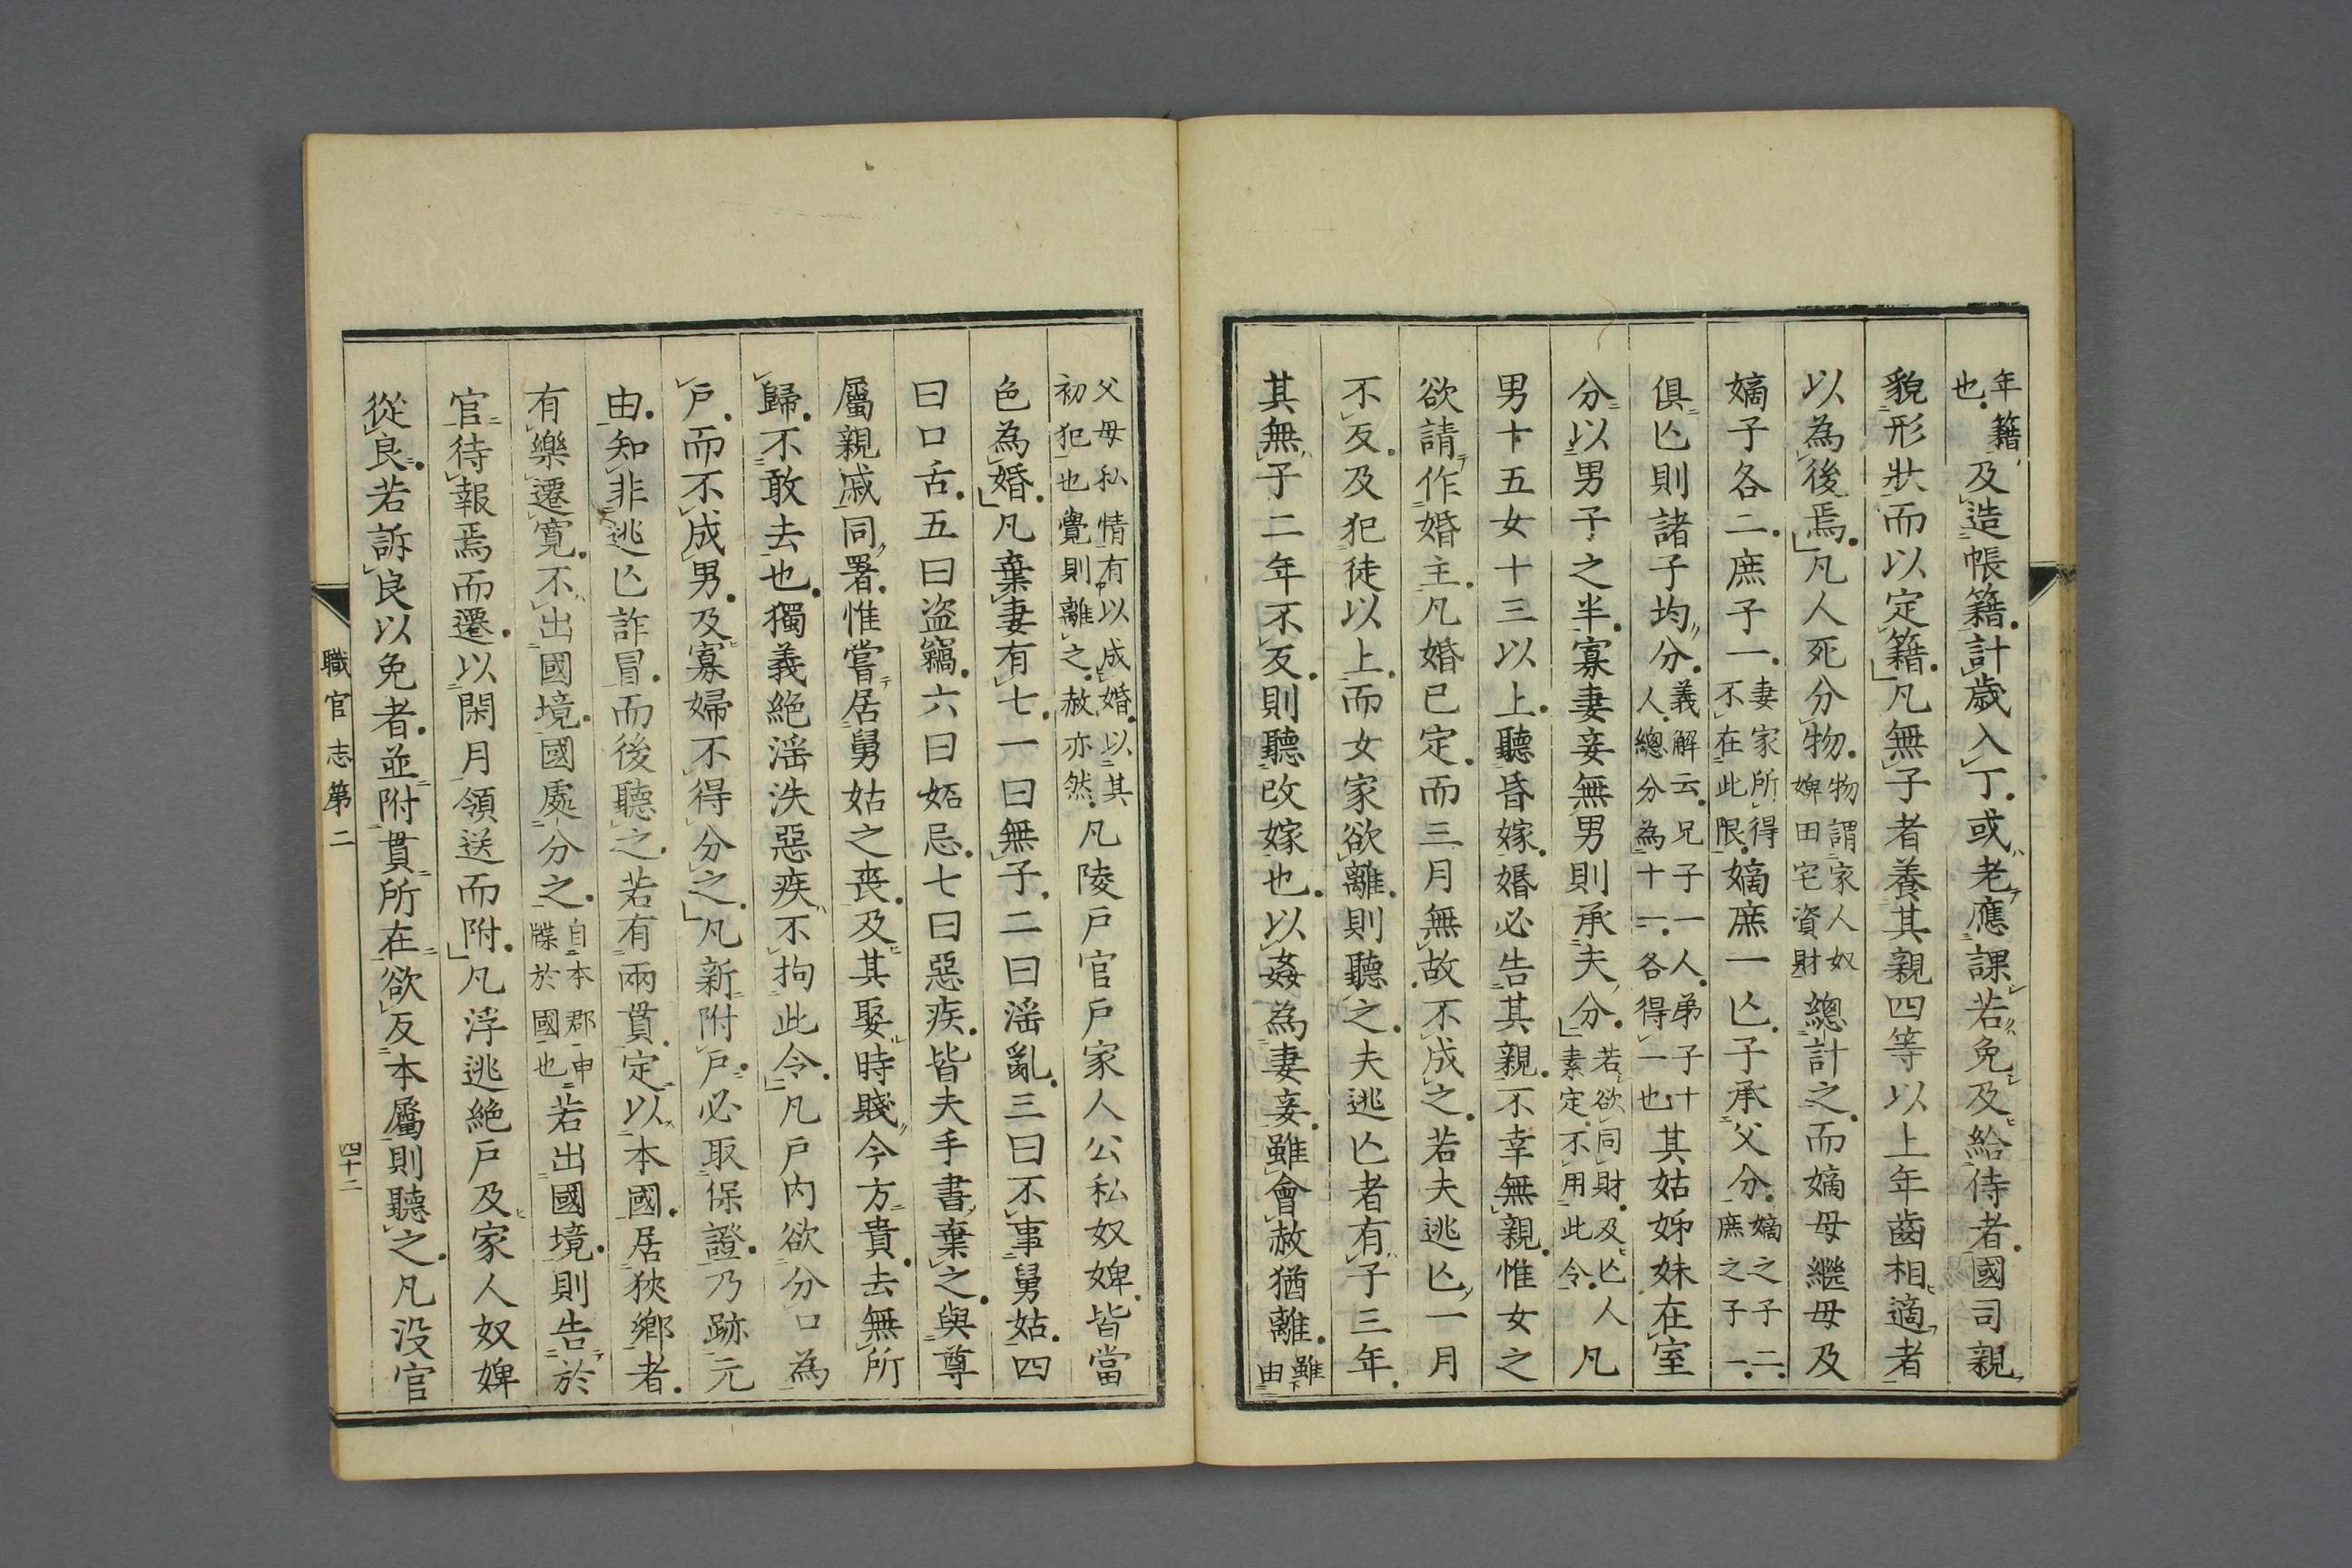 年籍也。及造帳籍。計歳入丁。或老應課若免及給侍者。國司親
貌形狀而以定籍。」凡無子者養其親四等以上年齒相適者
以為後焉。」凡人死分物。物謂家人奴婢田宅資財總計之。而嫡母繼母及
嫡子各二。庶子一。妻家所得不在此限。嫡庶一亾。子承父分。嫡之子二。庶之子一。
俱亾則諸子均分。義解云。兄子一人。弟子十人。總分為十一。各得一也其姑姊妹在室
分以男子之半。寡妻妾無男則承夫分。」若欲同財。及亾人素定。不用此令。凡
男十五女十三以上。聽昏嫁。婚必告其親。不幸無親。惟女之
欲請作婚主。凡婚已定。而三月無故。不成之。若夫逃亾。一月
不反。及犯徒以上。而女家欲離。則聽之。夫逃亾者有子三年。
其無子二年不反。則聽改嫁也。以姦為妻妾。雖會赦猶離。雖由
父母私情有以成婚。以其初犯也覺則離之。赦亦然。凡陵戸官戸家人公私奴婢。皆當
色為婚。」凡棄妻有七。一曰無子。二曰淫亂。三曰不事舅姑。四
曰口舌。五曰盜竊。六曰妬忌。七曰惡疾。皆夫手書棄之。與尊
屬親戚同署。惟嘗居舅姑之喪。及其娶時賤今方貴。去無所
歸。不敢去也。獨義絕淫泆惡疾不拘此令。」凡戸内欲分口為
戸。而不成男。及寡婦不得分之。」凡新附戸。必取保證。乃跡元
由。知非逃亾詐冒。而後聽之。若有兩貫。定以本國。居狹鄉者。
有樂遷寛。不出國境。國處分之。自本郡申牒於國也若出國境。則告於
官待報焉而遷。以閑月領送而附。」凡浮逃絕戸及家人奴婢
從良。若訴良以免者。並附貫所在欲反本屬則聽之。凡没官
職官志第二
四十二